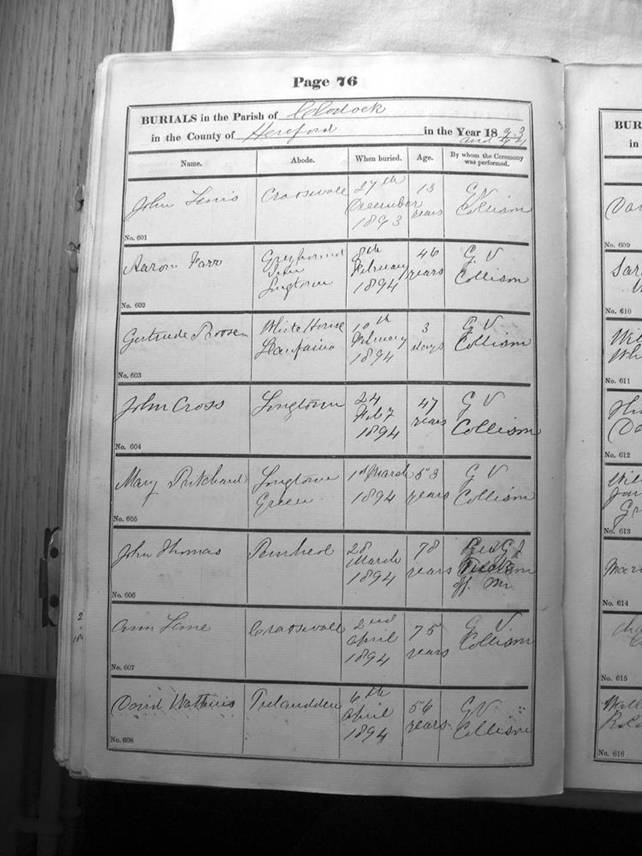 Page 76
BURIALS in the Parish of Clodock
in the County of Hereford in the Year 18 93
and 94
Name. Abode. When buried. Age. By whom the Ceremony was performed.
John Lewis Craswall 27th December 1893 13 years G V Collison
No. 601
Aaron Farr Greyhound Inn Longtown 8th February 1894 46 years G V Collison
No. 602
Gertrude White House Llanfaino 10th February 1894 3 days G V Collison
No. 603
John Cross Longtown 24 Feby 1894 47 years G V Collison
No. 604
Mary Pritchard Longtown Green 1st March 1894 53 years G V Collison
No. 605
John Thomas 28 March 1894 78 years
No. 606
Ann Craswall 2nd April 1894 75 years G V Collison
No. 607
David Watkins 6th April 1894 56 years G V Collison
No. 608
BUR
in
No. 609
No. 610
No. 611
No. 612
No. 613
No. 614
No. 615
No. 616